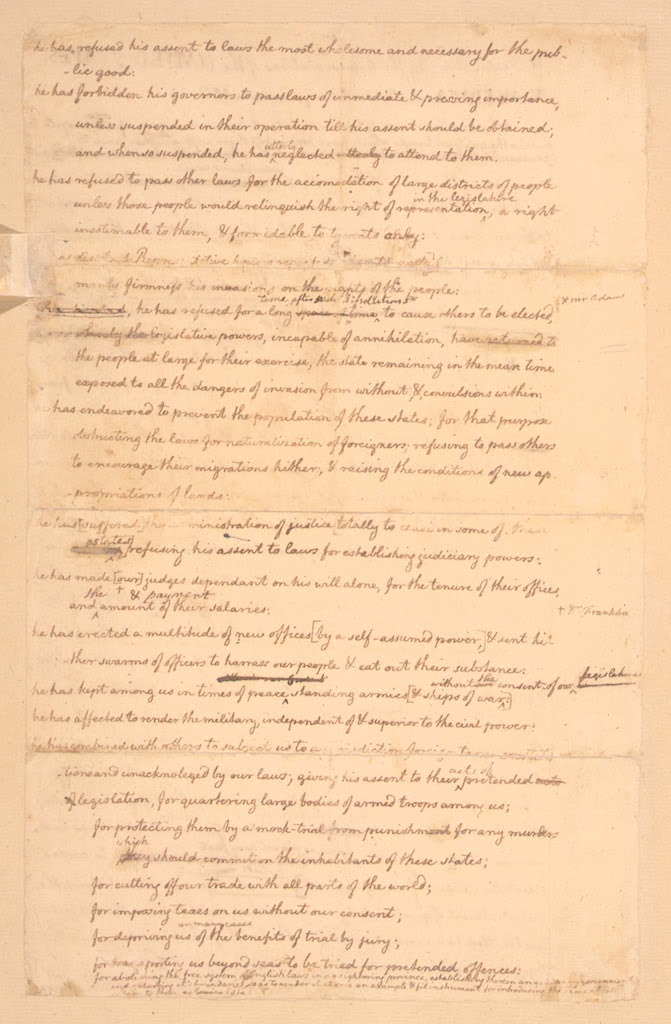 he has refused his assent to laws the most wholesome and necessary for the pub-
-lic good:
he has forbidden his governors to pass laws of immediate & pressing importance,
unless suspended in their operation till his assent should be obtained;
utterly
and when so suspended, he has neglected utterly to attend to them.
he has refused to pass other laws for the accomodation of large districts of people
in the legislature
unless those people would relinquish the right of representation, a right
inestimable to them, & formidable to tyrants only:
manly firmness his invasions on the rights of the people:
time after such dissolutions
he has refused for a long space of time to cause others to be elected,
* mr Adams
whereby the legislative powers, incapable of annihilation, have returned to
the people at large for their exercise, the state remaining in the mean time
exposed to all the dangers of invasion from without & convulsions within:
has endeavored to prevent the population of these states; for that purpose
obstructing the laws for naturalization of foreigners; refusing to pass others
to encourage their migrations hither; & raising the conditions of new ap-
-propriations of lands:
he has [suffered] the administration of justice [totally to cease in some of these
states]
refusing his assent to laws for establishing judiciary powers:
he has made [our] judges dependant on his will alone, for the tenure of their offices,
the + & payment
and amount of their salaries:
+ Dr. Franklin
he has erected a multitude of new offices [by a self-assumed power,] & sent hi-
-ther swarms of officers to harrass our people & eat out their substance:
without the consent of our legislatures
he has kept among us in times of peace standing armies [& ships of war:]
he has affected to render the military, independent of & superior to the civil power:
he has combined with others to subject us to a jurisdiction foreign to
acts of
-tions and unacknoleged by our laws; giving his assent to their pretended acts
of legislation, for quartering large bodies of armed troops among us;
for protecting them by a mock-trial from punishment for any murders
which
they should commit on the inhabitants of these states;
for cutting off our trade with all parts of the world;
for imposing taxes on us without our consent;
in many cases
for depriving us of the benefits of trial by jury;
for transporting us beyond seas to be tried for pretended offences:
for abolishing the free system of English laws in a neighboring province, establishing therein an government
and enlarging it's boundaries so as to render it at once an example & fit instrument for introducing the same